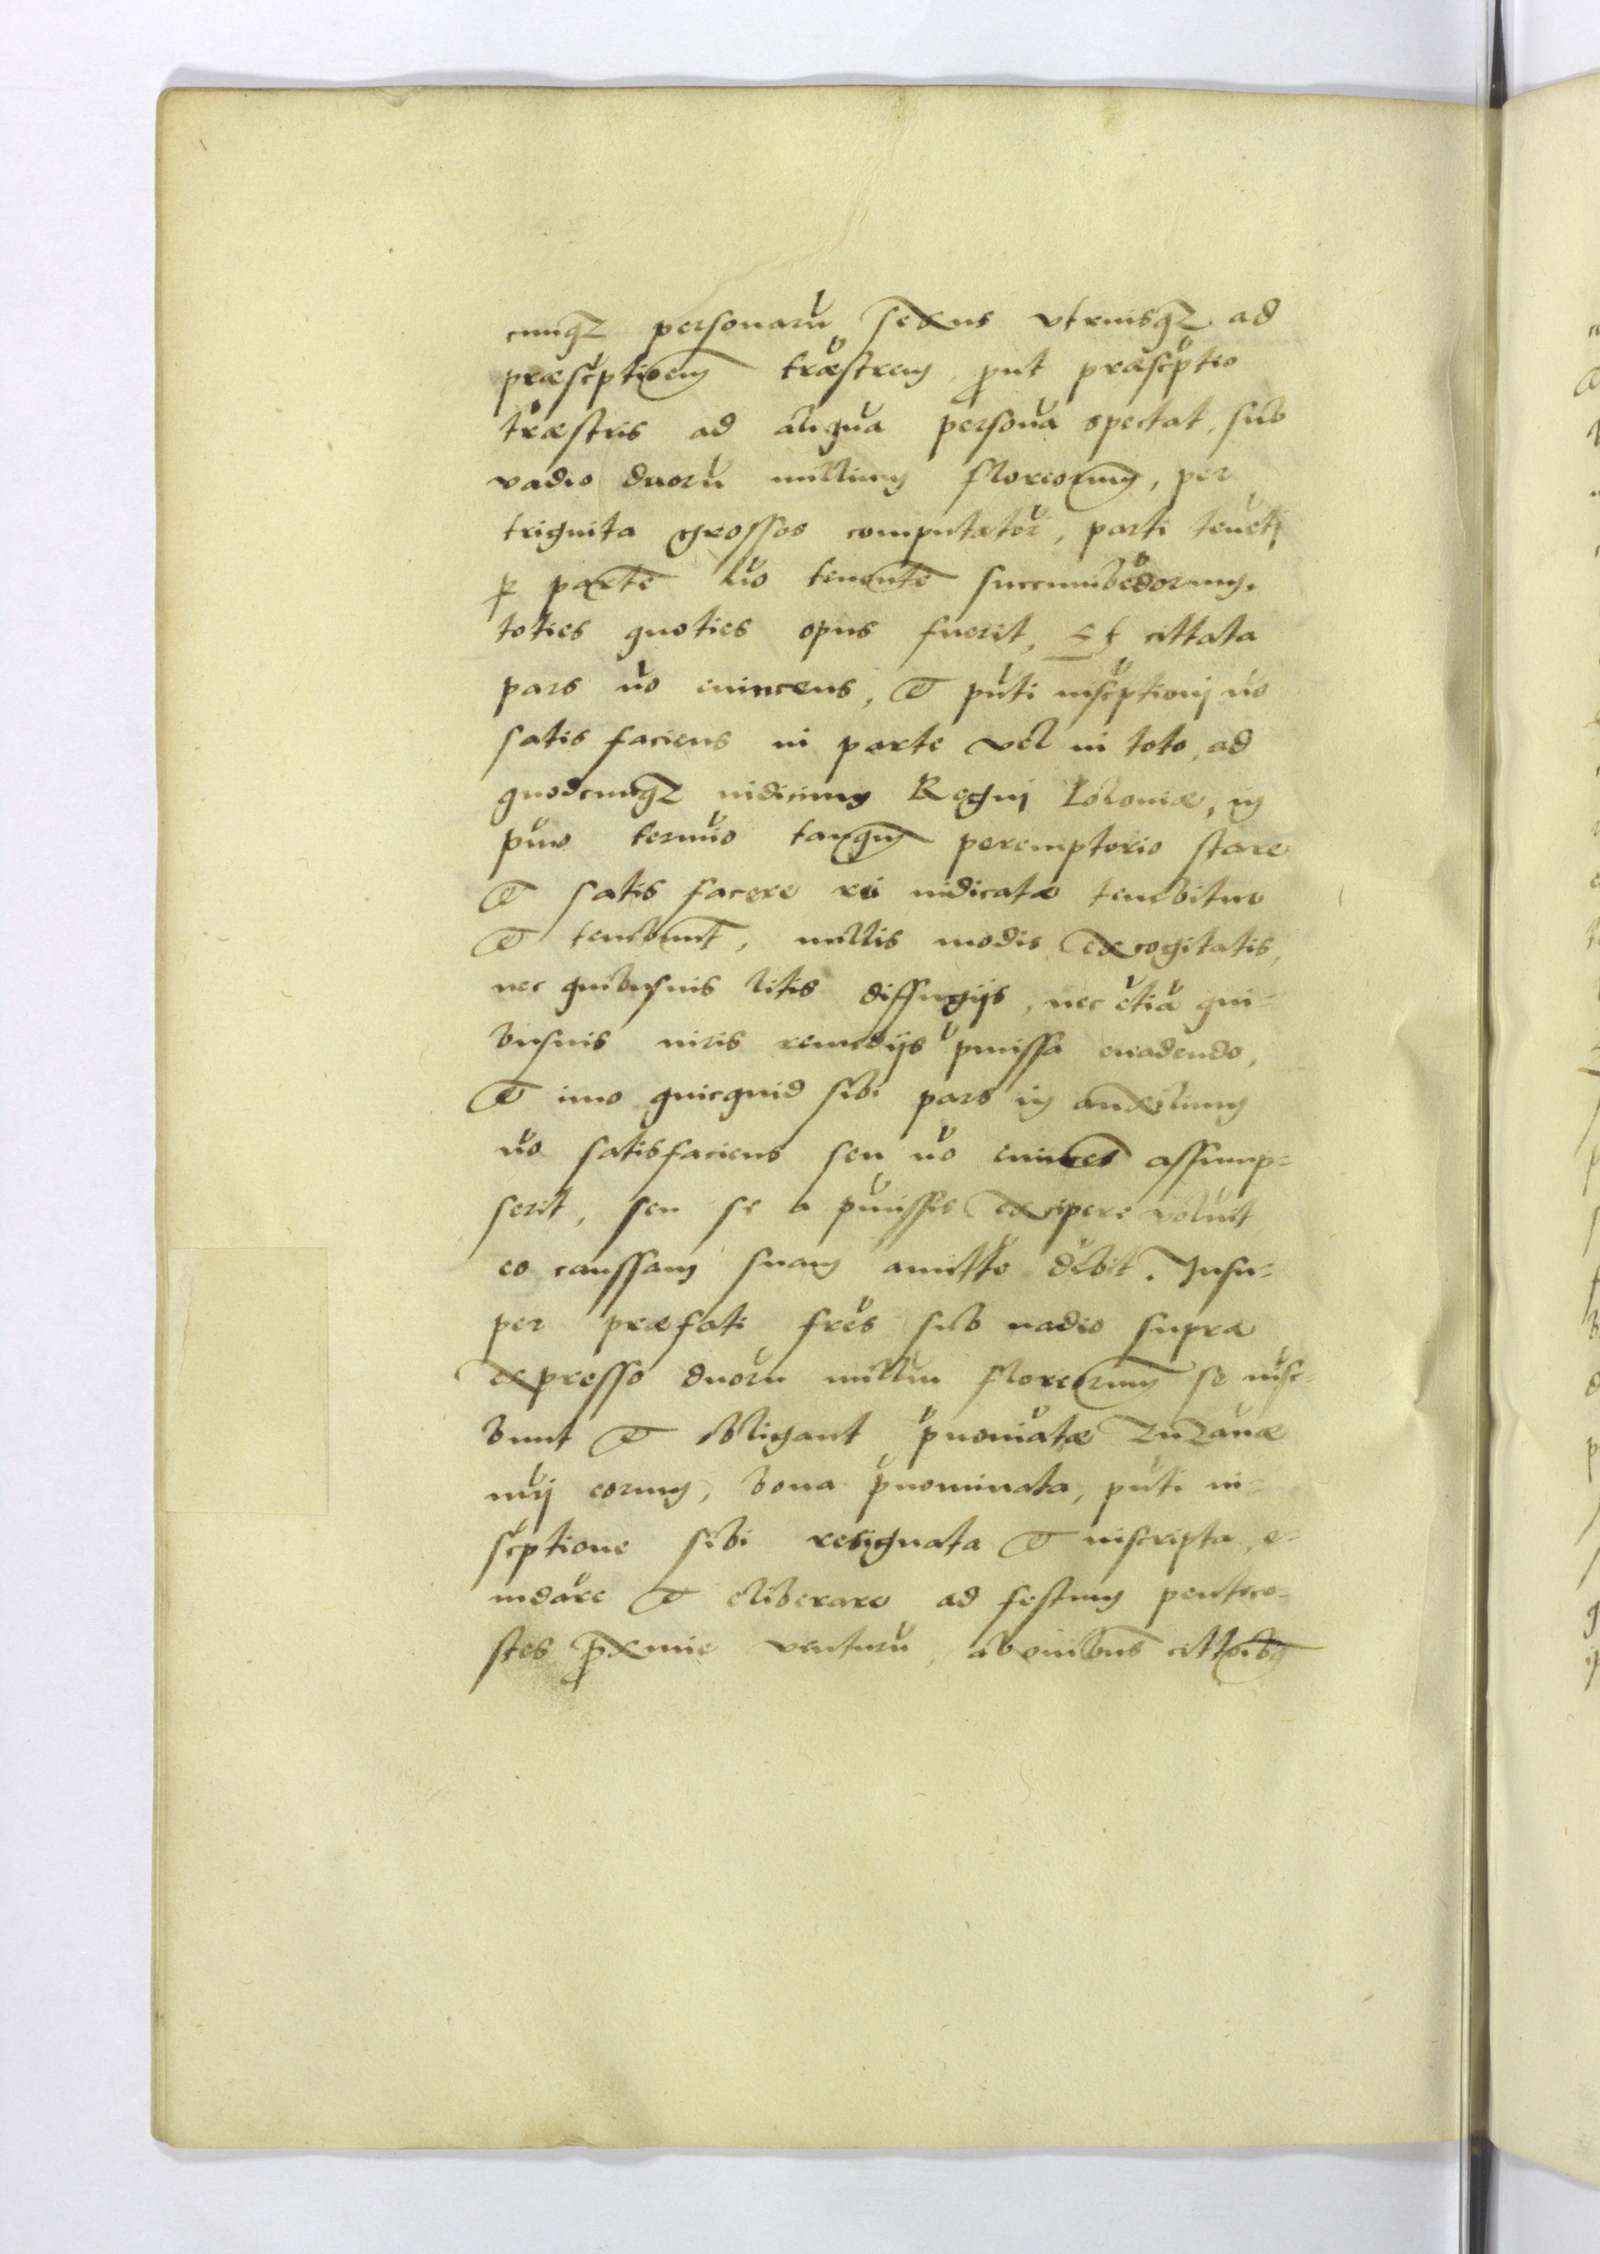 cunq[ue] personaru sexus vtriusq[ue] ad
præscptionem træstrem, put præscptio
træstris ad aliqua persona spectat, sub
vadio duoru millium florenorum, per
triginta grossos computator, parti teneti
p parte no tenente succumbedorum,
toties quoties opus fuerit, Et cittata
pars no euincens, et pnti inscptionj no
satis faciens in parte vel in toto, ad
quodcunq[ue] iudicium Regnj Poloniæ, in
pmo termio tanqm peremptorio stare
et satis facere rei iudicatæ tenebitur
et tenebunt, nullis modis excogitatis,
nec quibusuis litis diffugijs, nec etia qui-
busuis iuris remedijs pmissa euadendo,
et imo quicquid sibi pars in auxilium
no satisfaciens seu no euinces assump-
serit, seu se a pmissis excipere voluit
eo caussam suam amitte debit. Insu-
per præfati fres sub vadio supra
expresso duoru milliu florenorum se insc-
bunt et obligant pnoiatæ Zuzanæ
mrj eorum, bona pnominata, pnti in-
scptione sibi resignata et inscripta, e-
uidare et eliberare ad festum penteco-
stes pxime venturu, ab omibus